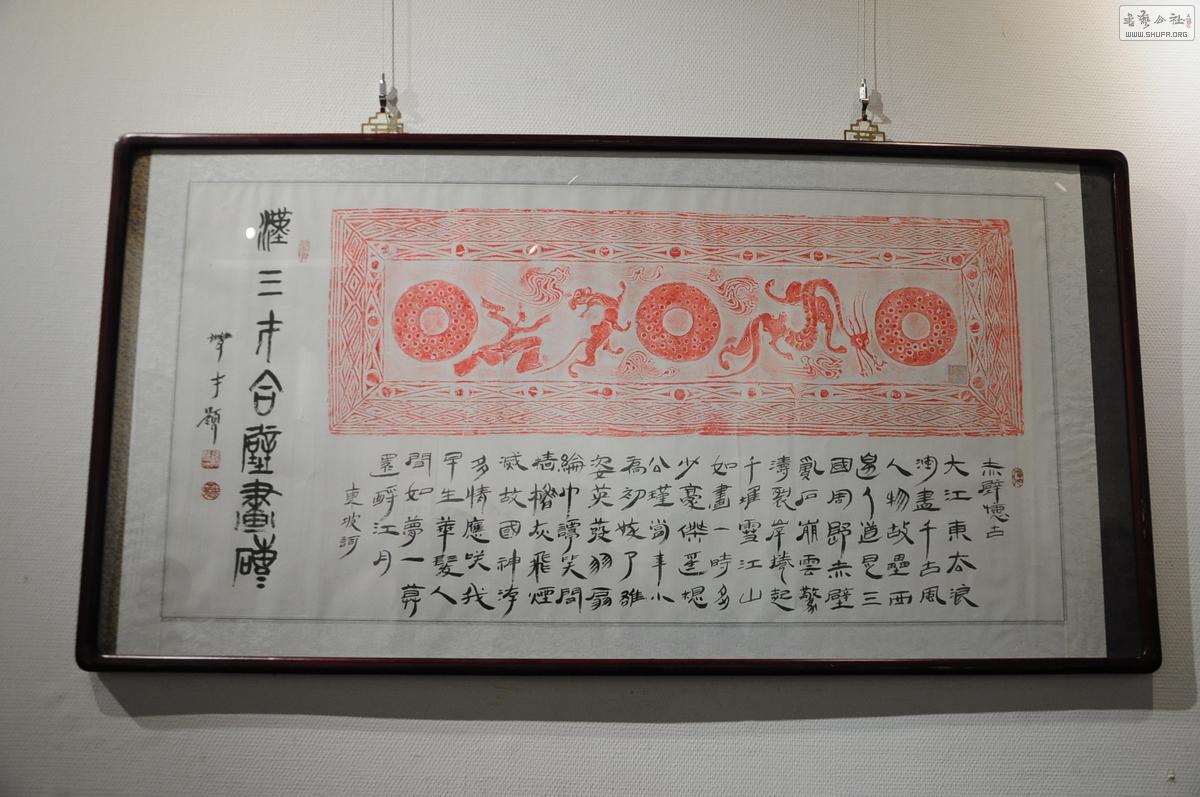 赤壁懷古
大江東去浪
淘盡千古風
人物故壘西
邊人道是三
國周郎赤壁
亂石崩雲驚
濤裂岸捲起
千堆雪江山
如畫一時多
少豪傑遙想
公瑾當年小
喬初嫁了雄
姿英發羽扇
綸巾談笑間
檣櫓灰飛煙
滅故國神游
多情應咲我
早生華髮人
間如夢一尊
還酹江月
東坡詞
漢三才合壁畫磚
才題
书艺公社
WWW.SHUFA.ORG